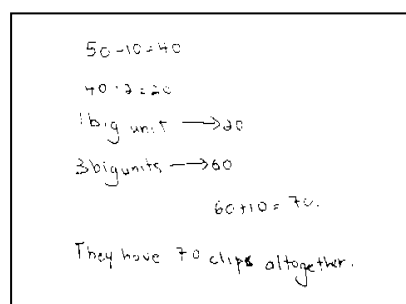 50-10=40
40÷2=20
1 big unit → 20
3 big units → 60
60+10=70.
They have 70 clips altogether.